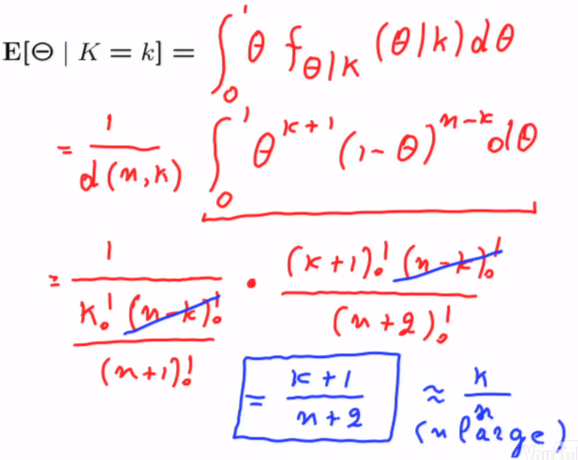 E[Θ | K = k] = ∫₀¹ θ f_{Θ|K} (θ|k) dθ
= 1/d(n,k) ∫₀¹ θ^{k+1} (1-θ)^{n-k} dθ
= 1/(k! (n-k)!/(n+1)!) · (k+1)! (n-k)!/(n+2)!
= (k+1)/(n+2) ≈ k/n
(n large)